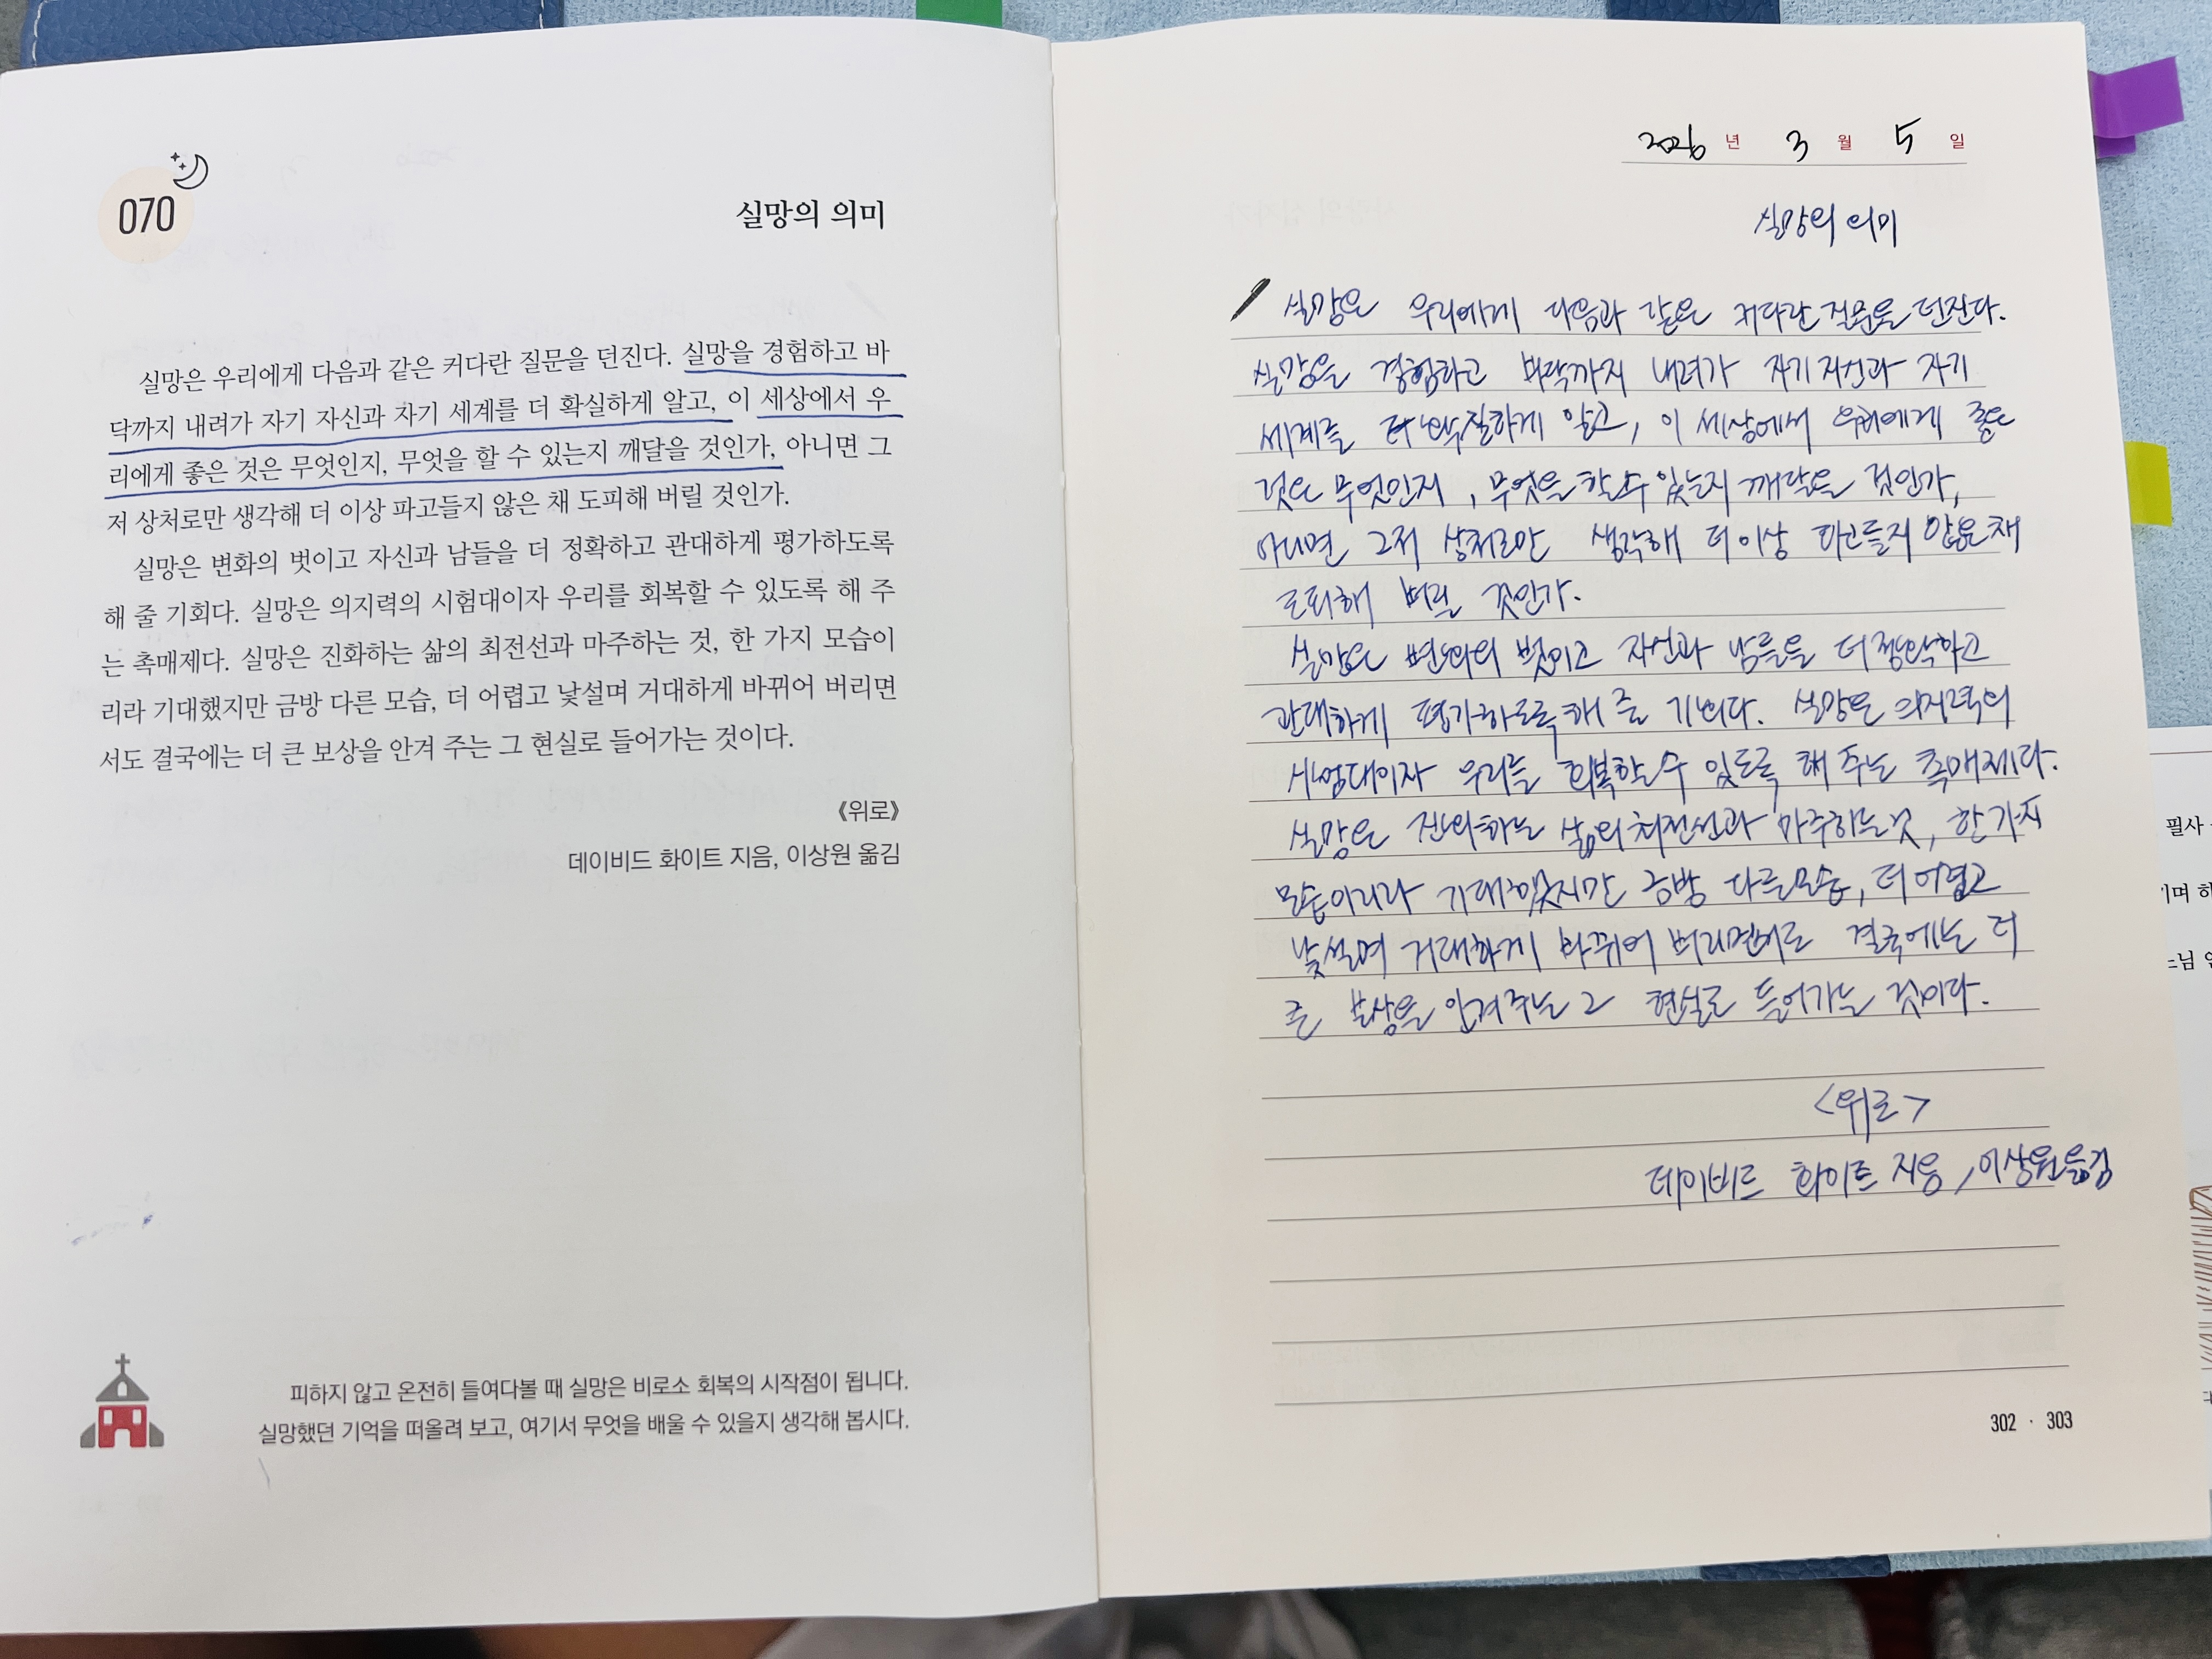 070
실망의 의미
실망은 우리에게 다음과 같은 커다란 질문을 던진다. 실망을 경험하고 바
닥까지 내려가 자기 자신과 자기 세계를 더 확실하게 알고, 이 세상에서 우
리에게 좋은 것은 무엇인지, 무엇을 할 수 있는지 깨달을 것인가, 아니면 그
저 상처로만 생각해 더 이상 파고들지 않은 채 도피해 버릴 것인가.
실망은 변화의 벗이고 자신과 남들을 더 정확하고 관대하게 평가하도록
해 줄 기회다. 실망은 의지력의 시험대이자 우리를 회복할 수 있도록 해 주
는 촉매제다. 실망은 진화하는 삶의 최전선과 마주하는 것, 한 가지 모습이
리라 기대했지만 금방 다른 모습, 더 어렵고 낯설며 거대하게 바뀌어 버리면
서도 결국에는 더 큰 보상을 안겨 주는 그 현실로 들어가는 것이다.
《위로》
데이비드 화이트 지음, 이상원 옮김
피하지 않고 온전히 들여다볼 때 실망은 비로소 회복의 시작점이 됩니다.
실망했던 기억을 떠올려 보고, 여기서 무엇을 배울 수 있을지 생각해 봅시다.
2026 년 3 월 5 일
실망의 의미
실망은 우리에게 다음과 같은 커다란 질문을 던진다.
실망을 경험하고 바닥까지 내려가 자기 자신과 자기
세계를 더 확실하게 알고, 이 세상에서 우리에게 좋은
것은 무엇인지, 무엇을 할 수 있는지 깨달을 것인가,
아니면 그저 상처로만 생각해 더 이상 파고들지 않은 채
도피해 버릴 것인가.
실망은 변화의 벗이고 자신과 남들을 더 정확하고
관대하게 평가하도록 해 줄 기회다. 실망은 의지력의
시험대이자 우리를 회복할 수 있도록 해 주는 촉매제다.
실망은 진화하는 삶의 최전선과 마주하는 것, 한 가지
모습이리라 기대했지만 금방 다른 모습, 더 어렵고
낯설며 거대하게 바뀌어 결국에는 더
큰 보상을 안겨 주는 그 현실로 들어가는 것이다.
<위로>
데이비드 화이트 지음, 이상원 옮김
302 · 303
필사